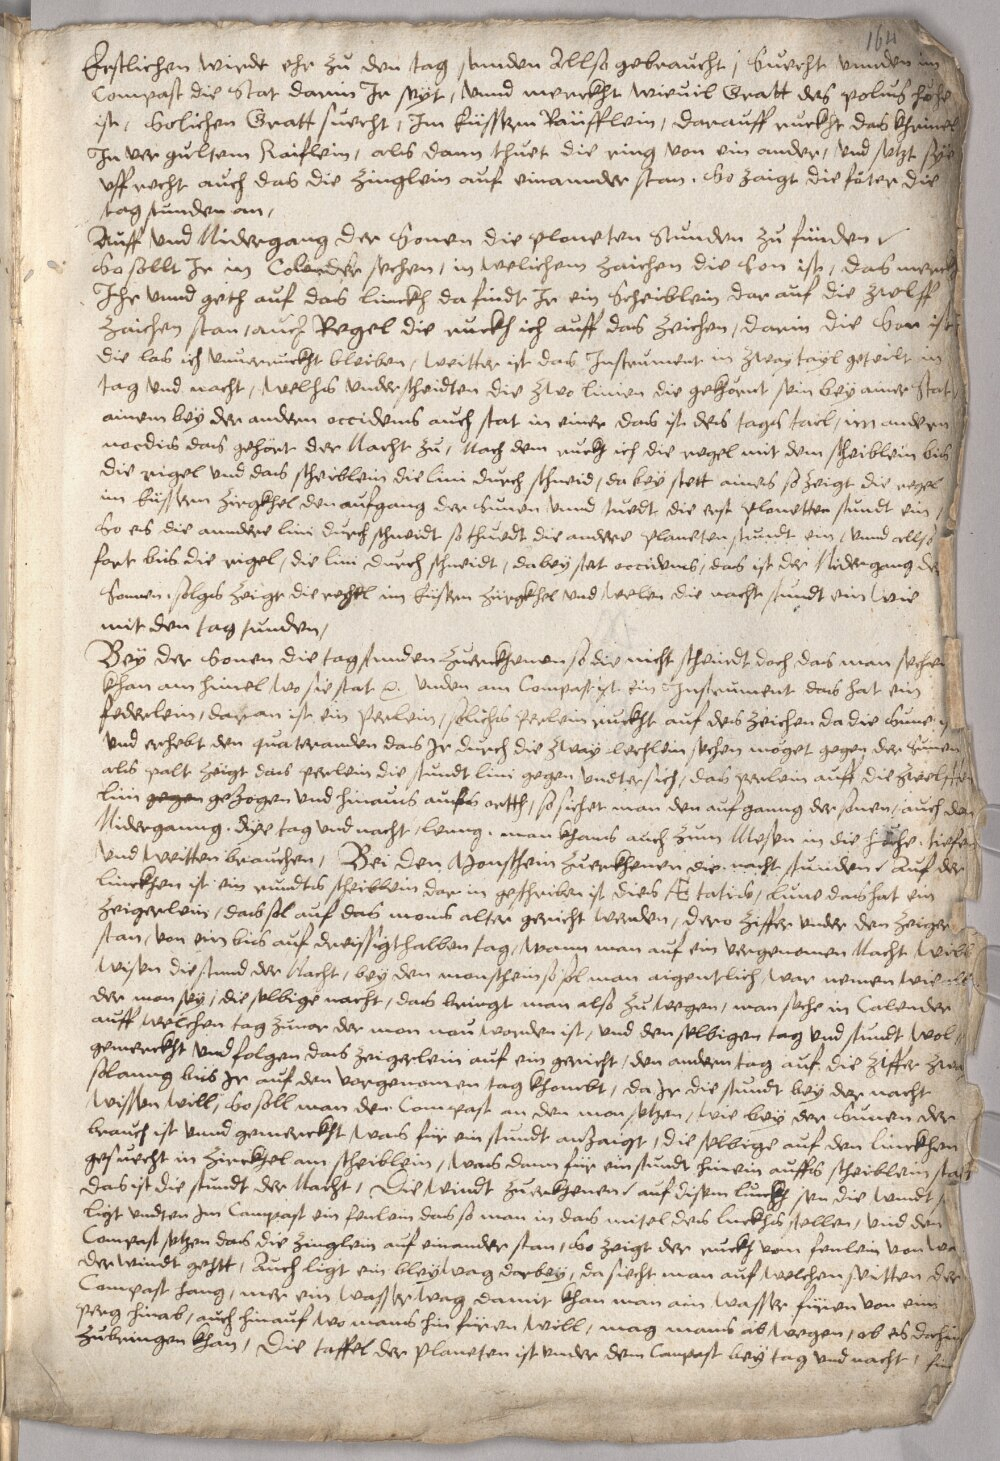 164
Erstlichen wirdt ehr zu den tag stunden Allso gebraucht, Suecht vunden im
Compast die Stat darin Ir seyt, vnnd merckht wieuil Gratt des polus höhe
ist, Solichen Gratt suecht, Im eüssern Räüfflein, darauff ruckht das
In ver gultem Raiflein, als dann thuet die ring von ein ander, vnd setzt sye
vffrecht auch das die Zinglein auf einannder stan. So zaigt die fäter die
tag stunden an,
Auff vnd Nidergang der Sonen die planeten Stunden zu fünden
So sollt Ir im Calender sechen, in welichem zaichen die Son ist, das merckt
Ihr vnnd geth auf das linckh da findt Ir ein Scheiblein dar auf die zwolff
Zaichen stan, auch Regel die ruckh ich auff das Zeichen, darin die Son ist
die las ich vnuerruckht bleiben, weitter ist das Instrument in zway tayl geteilt in
tag vnd nacht, welhes vnderscheidten die zwo linien die gehörnt sein bey ainer Stat
ainem bey der andern occidens auch stat in einer das ist des tages tail, im andern
nocdis das gehört der Nacht zu, Nach dem ruckh ich die regel mit dem scheiblein bis
die rigel vnd das scheiblein die lini durch schneid, da bey stett aines so zeigt die regel
im eüssern Zirgkhel den aufgang der Sunen vnnd tuedt die erst planetten stundt ein,
So es die anndere lini durch schneidt so thuedt die andere planeten stundt ein, vnnd allso
fort bis die rigel, die lini durch schneidt, dabey stet occidens, das ist der Nidergang der
Sonnen, solgs zeigt die regel im eüssern Zürgkhel vnd welen die nacht stundt ein wie
mit den tag stunden,
Bey der Sonen die tag stunden zuerkhenen so die nicht scheindt doch das man sechen
khan am himel wo sie stat. Vnden am Compast ist ein Instrument das hat ein
federlein, daran ist ein Perlein, solichs Perlein ruckht auf des Zeichen da die Sune
vnd erhebt den quateranden das Ir durch die zway lechlein sechen möget gegen der Sunen
als palt zeigt das perlein die stundt lini gegen vndtersich, das perlein auff die zwelften
lini gegen gezogen vnd hinaus aufs ortth, so sichet man den aufgang der sonen, auch den
Nidergang. Dye tag vnd nacht, leng. man khans auch zum Mesen in die höche, tiefen
vnd weitten brauchen, Bei den Monschein zuerkhenen die nacht stunden Auf der
linckhen ist ein rundts scheiblein dar in geschriben ist dies Ætatis, lune das hat ein
Zeigerlein, das sol auf das mons alter gericht werden, dero Ziffer vnder den Zeiger
stan, von ein bis auf dreissigthalben tag, wann man auf ein vergenomen Nacht will
wisen die stund der Nacht, bey den monschein so sol man aigentlich war nemen wie alt
der mon sey, die selbige nacht, das bringt man also zu wegen, man seche in Calender
auff welchen tag zuuor der mon neu worden ist, vnd den selbigen tag vnd stundt wol
gemerckht vnd folgen das Zeigerlein auf ein gericht, den andern tag auf die Ziffer zwei
solanng bis Ir auf den vorgenomen tag khombt, da Ir die stundt bey der nacht
wissen will, So soll man den Compast an den mon setzen, wie bey der Sunen der
brauch ist vnnd gemerckht was für ein stundt anzaigt, die selbige auf den linckhen
gesuecht in Zirckhel am scheiblein, was dann für ein stundt hinein auffs scheiblein stat
das ist die stundt der Nacht, Die windt zuerkhenen auf disem luckh sen die windt,
ligt vndten Im Compast ein fenlein das so man in das mitel des luckhs stellen, vnd den
Compast setzen das die Zinglein auf einander stan, So zeigt der ruckh vom fenlein von wo
der windt geht, Auch ligt ein bleywag darbey, da siecht man auf welchen seitten der
Compast hang, mer ein wasserwag damit khan man ain wasser füren von eim
perg hinab, auch hinauf wo mans hin füren will, mag mans ab wegen, ob es dahin
zubringen khan, Die taffel der Planeten ist vnder dem Compast bey tag vnd nacht,